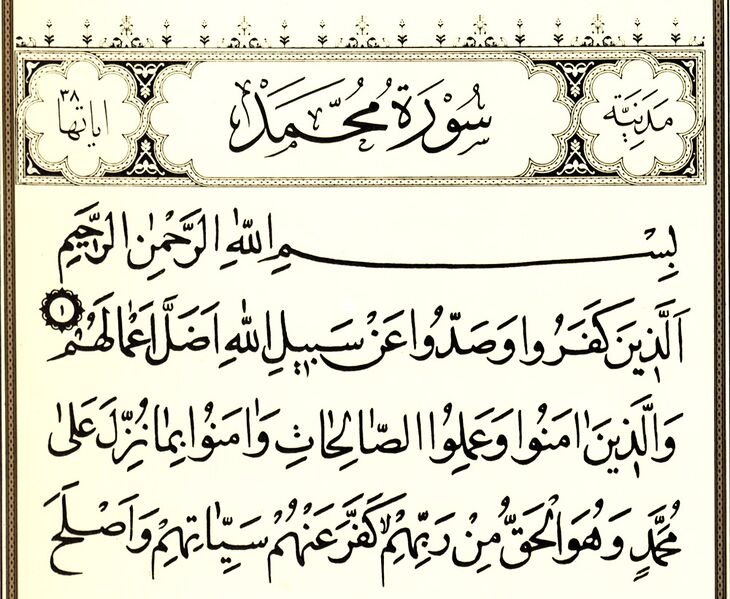 مَدَنِيَّة سُوْرَةُ مُحَمَّد اياتها ٣٨
بِسْمِ اللّٰهِ الرَّحْمٰنِ الرَّحِيمِ
اَلَّذِينَ كَفَرُوا وَصَدُّوا عَنْ سَبِيلِ اللّٰهِ اَضَلَّ اَعْمَالَهُمْ ١
وَالَّذِينَ اٰمَنُوا وَعَمِلُوا الصَّالِحَاتِ وَاٰمَنُوا بِمَا نُزِّلَ عَلٰى
مُحَمَّدٍ وَهُوَ الْحَقُّ مِنْ رَبِّهِمْ ۙ كَفَّرَ عَنْهُمْ سَيِّاٰتِهِمْ وَاَصْلَحَ